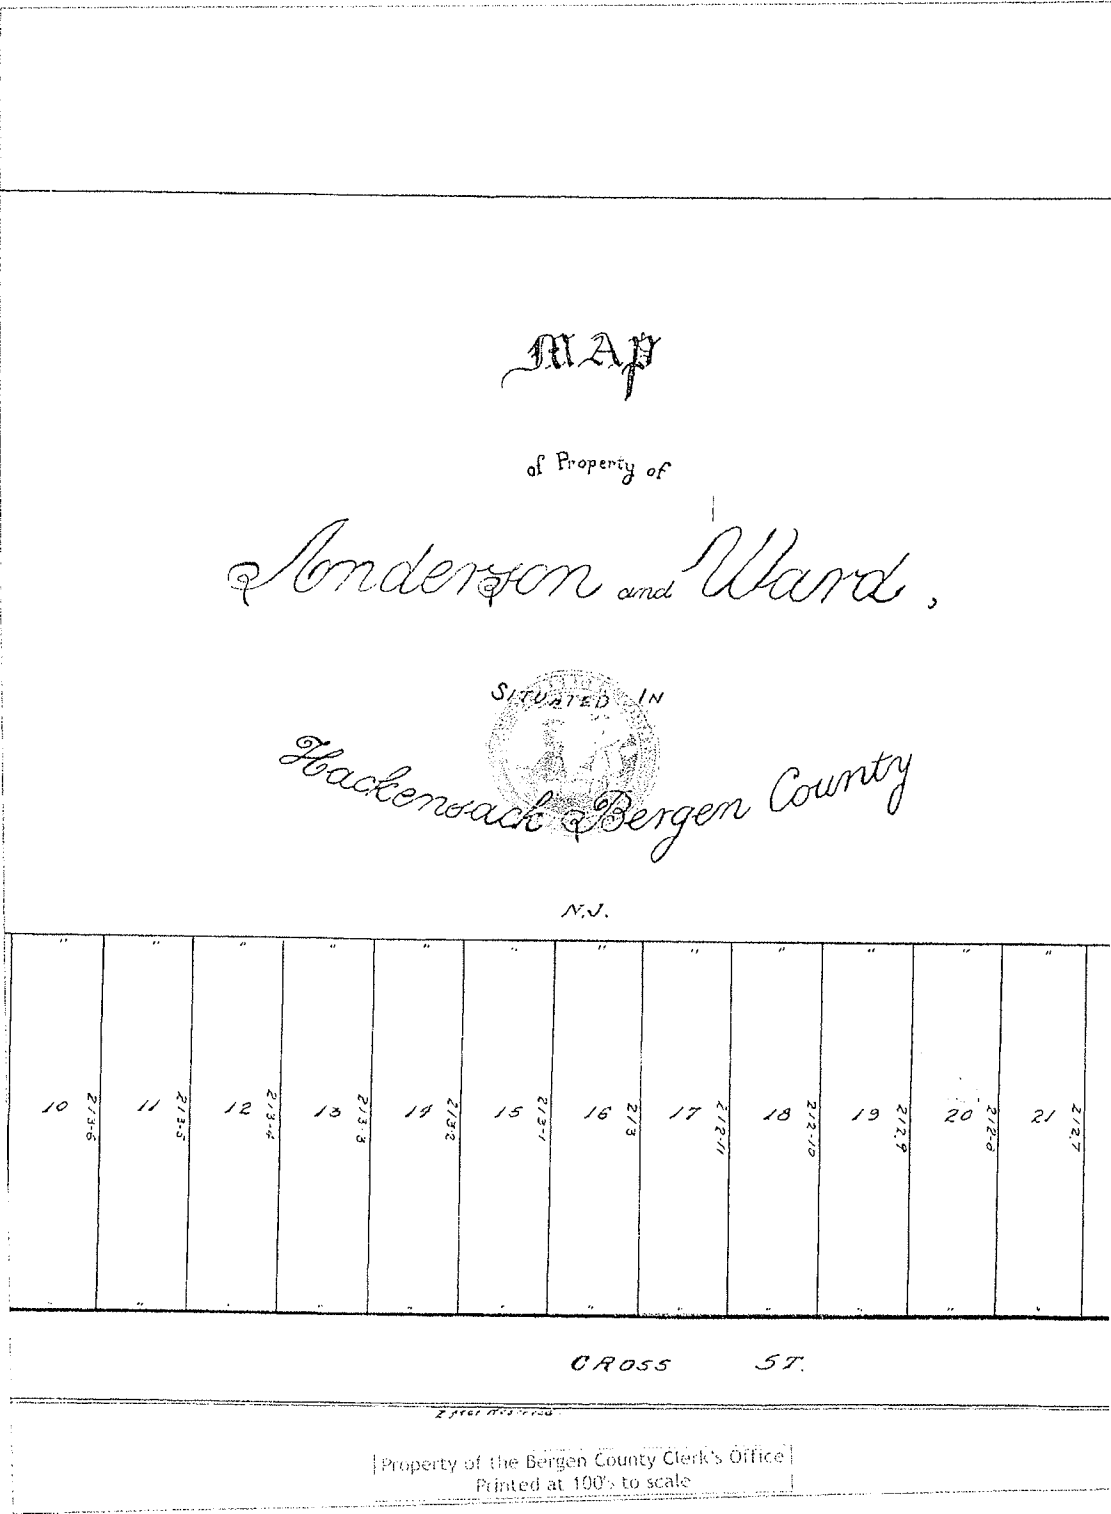 MAP
of Property of
Anderson and Ward,
SITUATED IN
Hackensack Bergen County
N.J.
" " " " " " " " " " " "
10 213-6 11 213-5 12 213-4 13 213-3 14 213-2 15 213-1 16 213 17 212-11 18 212-10 19 212.9 20 212-8 21 212.7
" " " " " " " " " " " "
CROSS ST.
Reserved
Property of the Bergen County Clerk's Office
Printed at 100's to scale